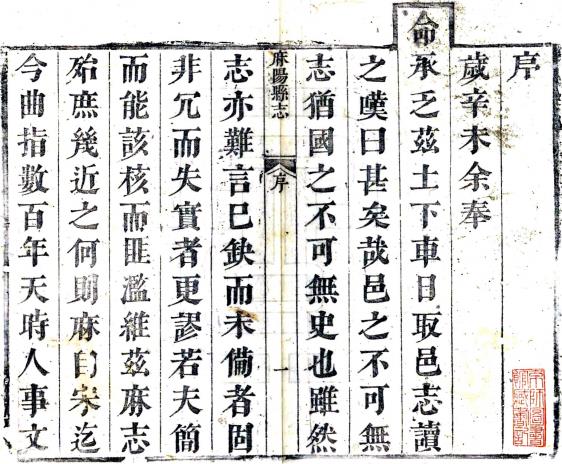 序
歲辛未余奉
命承乏茲土下車日取邑志讀
之嘆曰甚矣哉邑之不可無
志猶國之不可無史也雖然
麻陽縣志 序 一
志亦難言已缺而未備者固
非冗而失實者更謬若夫簡
而能該核而匪濫維茲麻志
殆庶幾近之何則麻自宋迄
今曲指數百年天時人事文